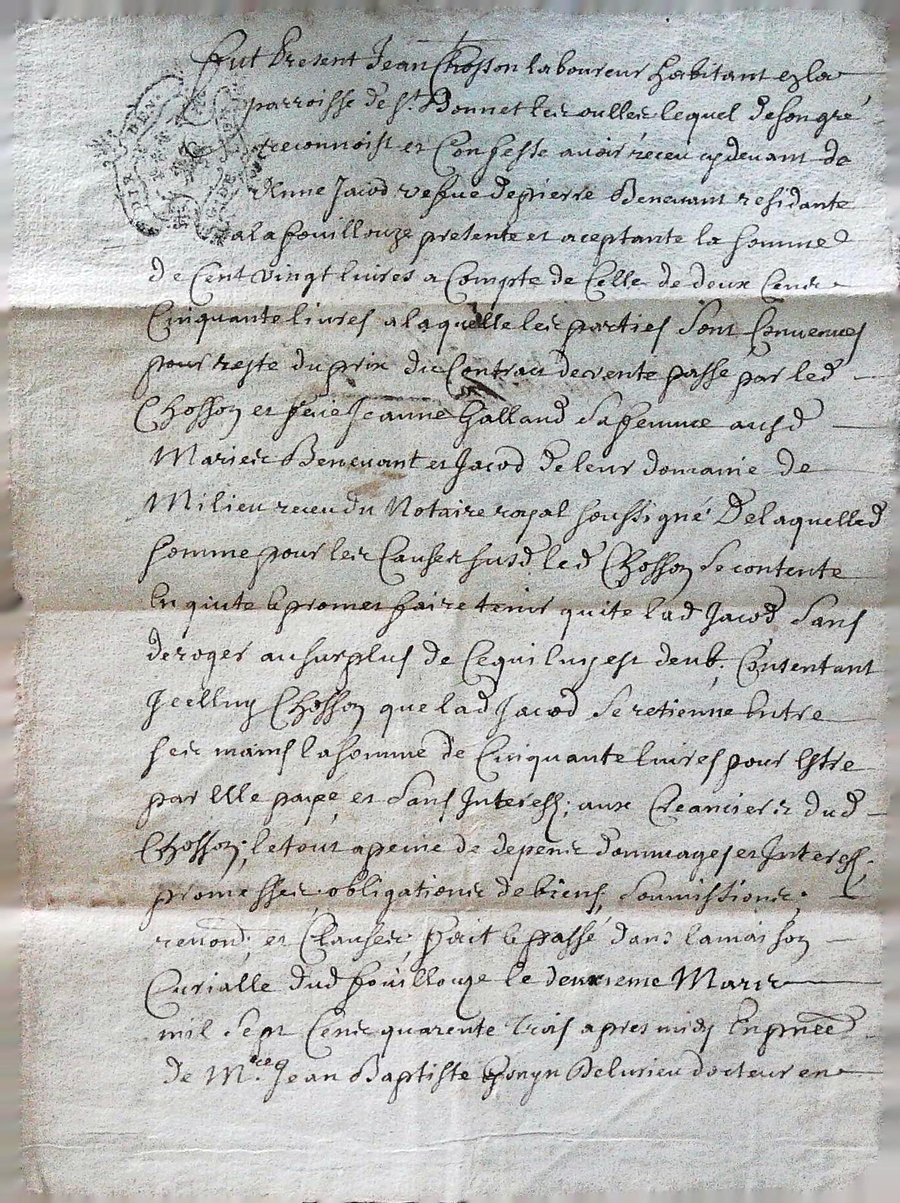 Fut Present Jean Chosson laboureur habitant en la
parroisse de St. Bonnet les oulles lequel de son gré
reconnoist et Confesse avoir receu cy devant de
Anne Jacod vefve de pierre Benevant residante
a la fouillouze presente et aceptante la somme
de Cent vingt livres a Compte de Celle de deux Cens
Cinquante livres a laquelle les parties sont Convenues
pour reste du prix du Contract de vente passé par led
Chosson et feüe Jeanne Galland sa femme ausd
Maries Benevant et Jacod de leur domaine de
Milieu receu du Notaire royal soussigné De laquelled
somme pour les Causes susd led Chosson se contente
En quite & promet faire tenir quite lad Jacod sans
deroger au surplus de Ce qui luy est deub, Consentant
Jcelluy Chosson que lad Jacod se retienne Entre
ses mains la somme de Cinquante livres pour Estre
par Elle payé, et sans Interest; aux Creanciers dud
Chosson; le tout a peine de depens dommages et Interest;
promesses obligations de biens, soumissions,
renond; et Clauses, fait & passé dans la maison
Curialle dud fouillouze le deuxieme Mars
mil sept Cens quarente trois apres midy En pñce
de Mre Jean Baptiste docteur en